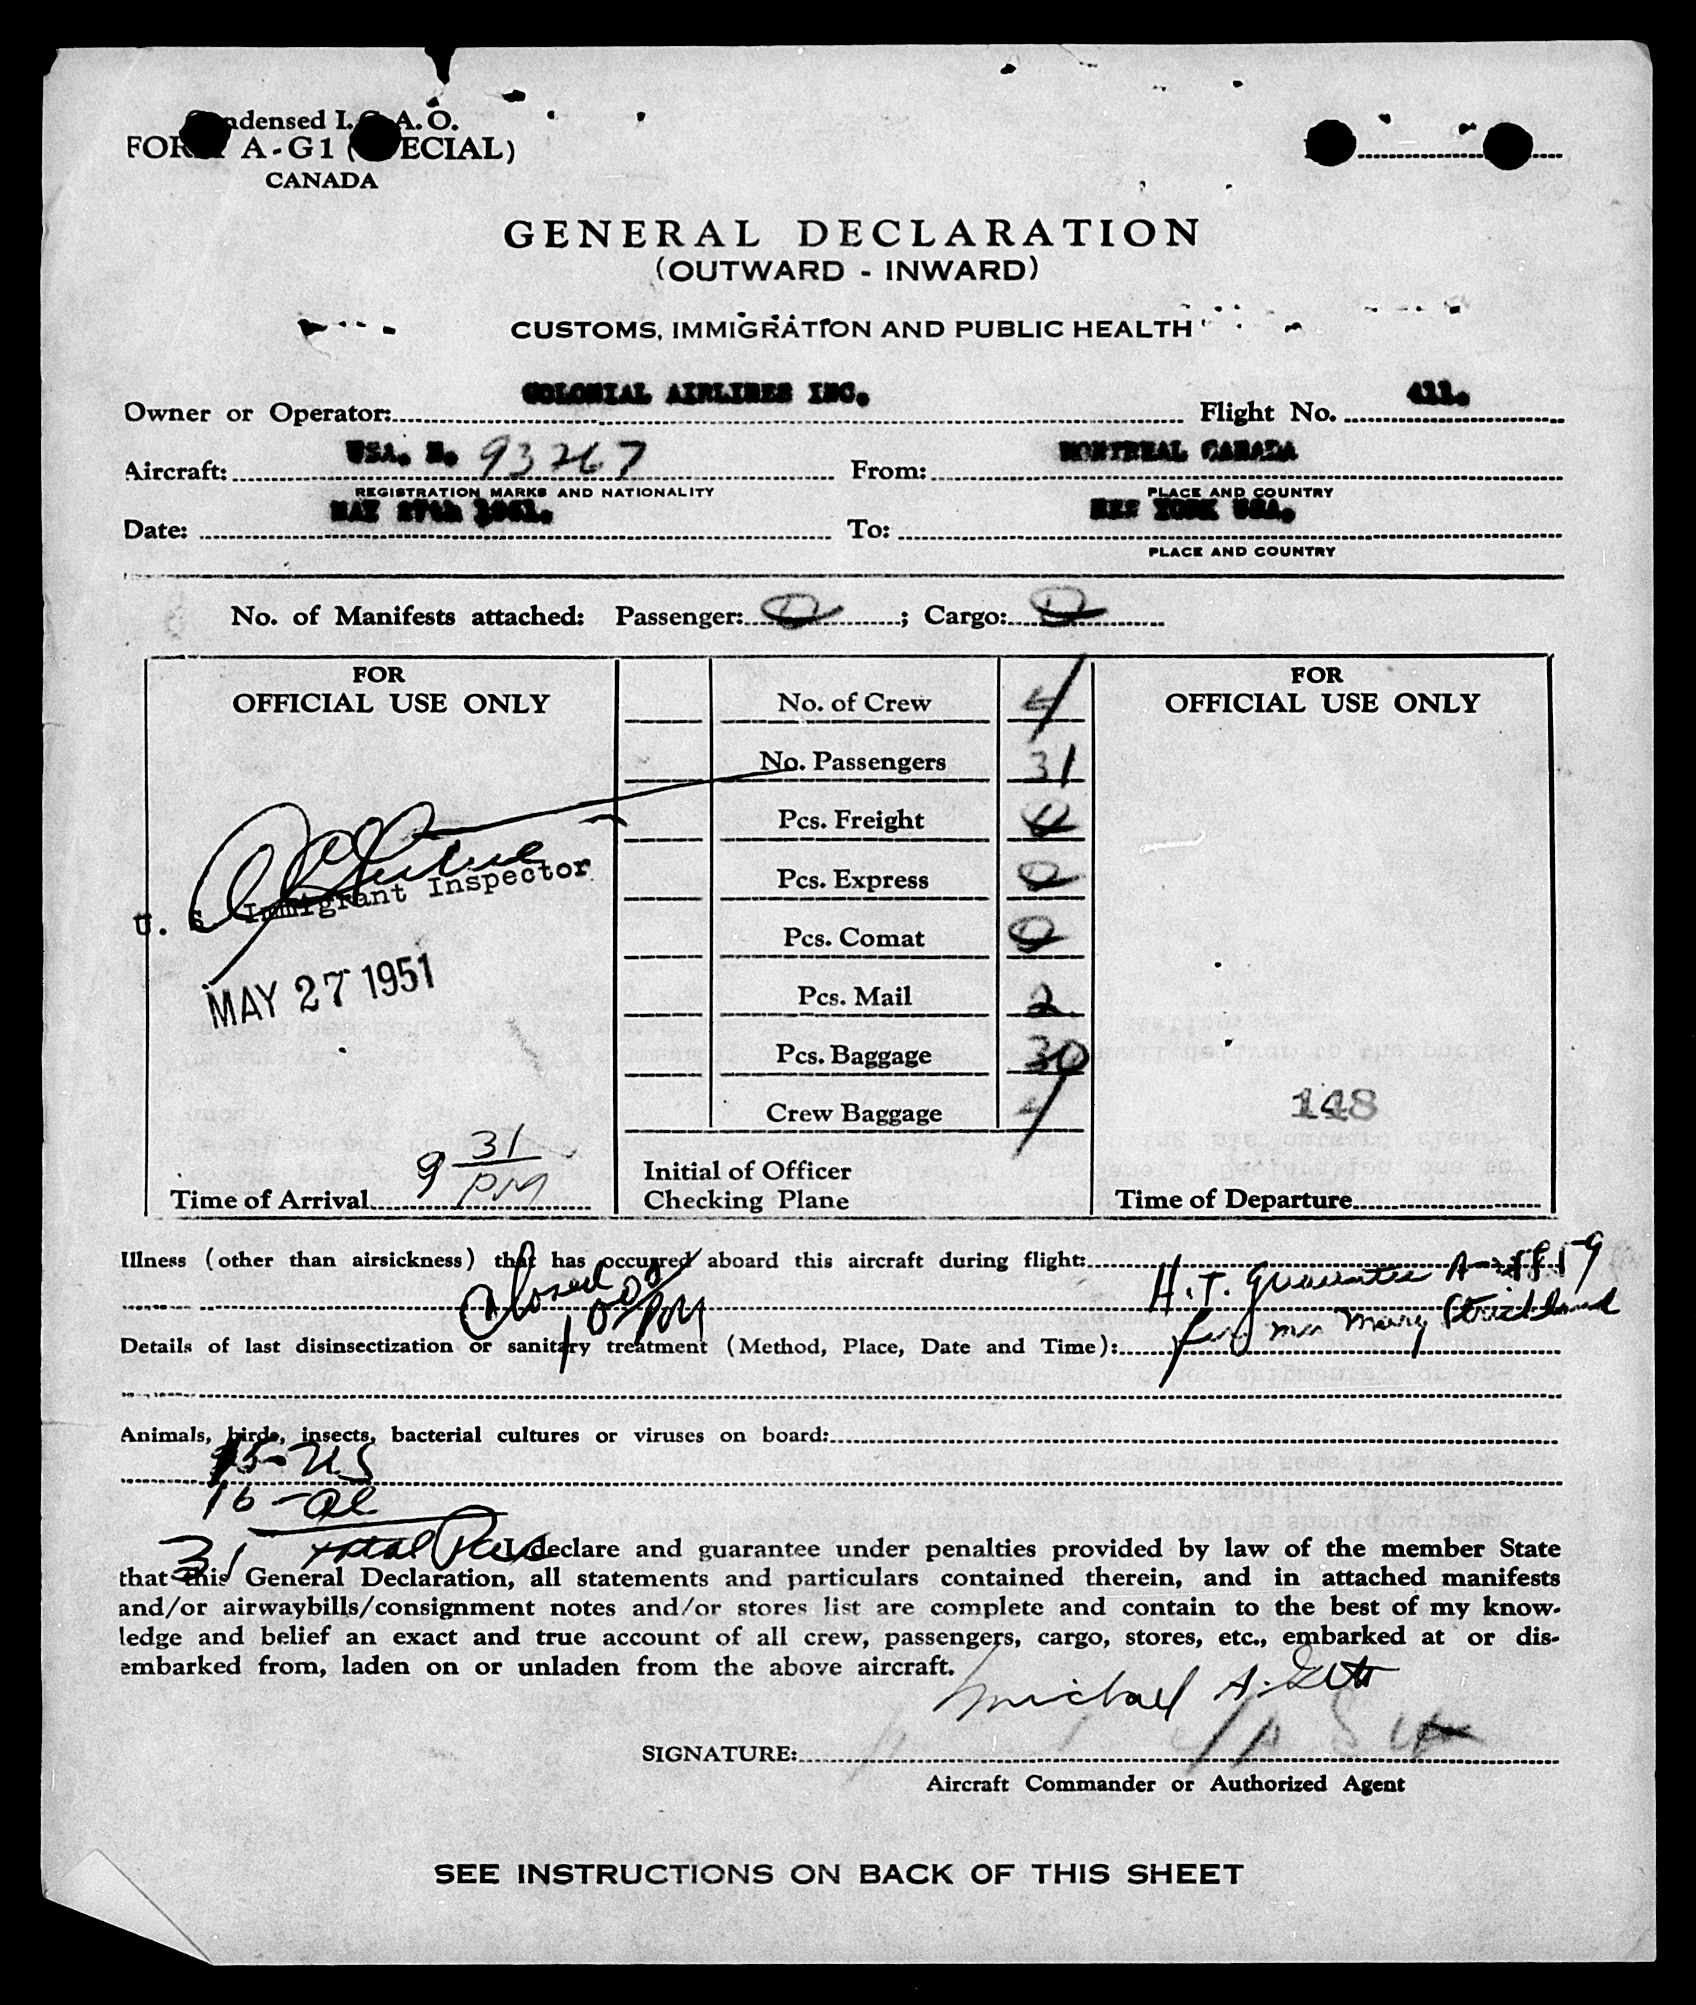 Condensed I.C.A.O.
FORM A-G1 (SPECIAL)
CANADA
GENERAL DECLARATION
(OUTWARD - INWARD)
CUSTOMS, IMMIGRATION AND PUBLIC HEALTH
Owner or Operator: COLONIAL AIRLINES INC. Flight No. 411.
Aircraft: USA. N. 93267 From: MONTREAL CANADA
REGISTRATION MARKS AND NATIONALITY PLACE AND COUNTRY
Date: MAY 27th 1951. To: NEW YORK USA.
PLACE AND COUNTRY
No. of Manifests attached: Passenger: 0; Cargo: 0
FOR
OFFICIAL USE ONLY
U. S. Immigrant Inspector
MAY 27 1951
Time of Arrival 9 31 PM
No. of Crew 4
No. Passengers 31
Pcs. Freight 0
Pcs. Express 0
Pcs. Comat 0
Pcs. Mail 2
Pcs. Baggage 30
Crew Baggage 4
Initial of Officer
Checking Plane
FOR
OFFICIAL USE ONLY
148
Time of Departure
Illness (other than airsickness) that has occurred aboard this aircraft during flight:
Closed 10 00/PM
H.T. Guarantee
for Mrs Mary Strickland
Details of last disinsectization or sanitary treatment (Method, Place, Date and Time):
Animals, birds, insects, bacterial cultures or viruses on board:
15-US
16-al
31 total Pass
I declare and guarantee under penalties provided by law of the member State
that this General Declaration, all statements and particulars contained therein, and in attached manifests
and/or airwaybills/consignment notes and/or stores list are complete and contain to the best of my know-
ledge and belief an exact and true account of all crew, passengers, cargo, stores, etc., embarked at or dis-
embarked from, laden on or unladen from the above aircraft.
Michael A.
SIGNATURE:
Aircraft Commander or Authorized Agent
SEE INSTRUCTIONS ON BACK OF THIS SHEET